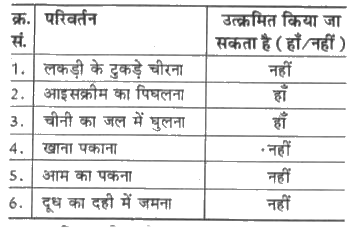 क्र. सं. परिवर्तन उत्क्रमित किया जा सकता है ( हाँ/नहीं )
1. लकड़ी के टुकड़े चीरना नहीं
2. आइसक्रीम का पिघलना हाँ
3. चीनी का जल में घुलना हाँ
4. खाना पकाना नहीं
5. आम का पकना नहीं
6. दूध का दही में जमना नहीं